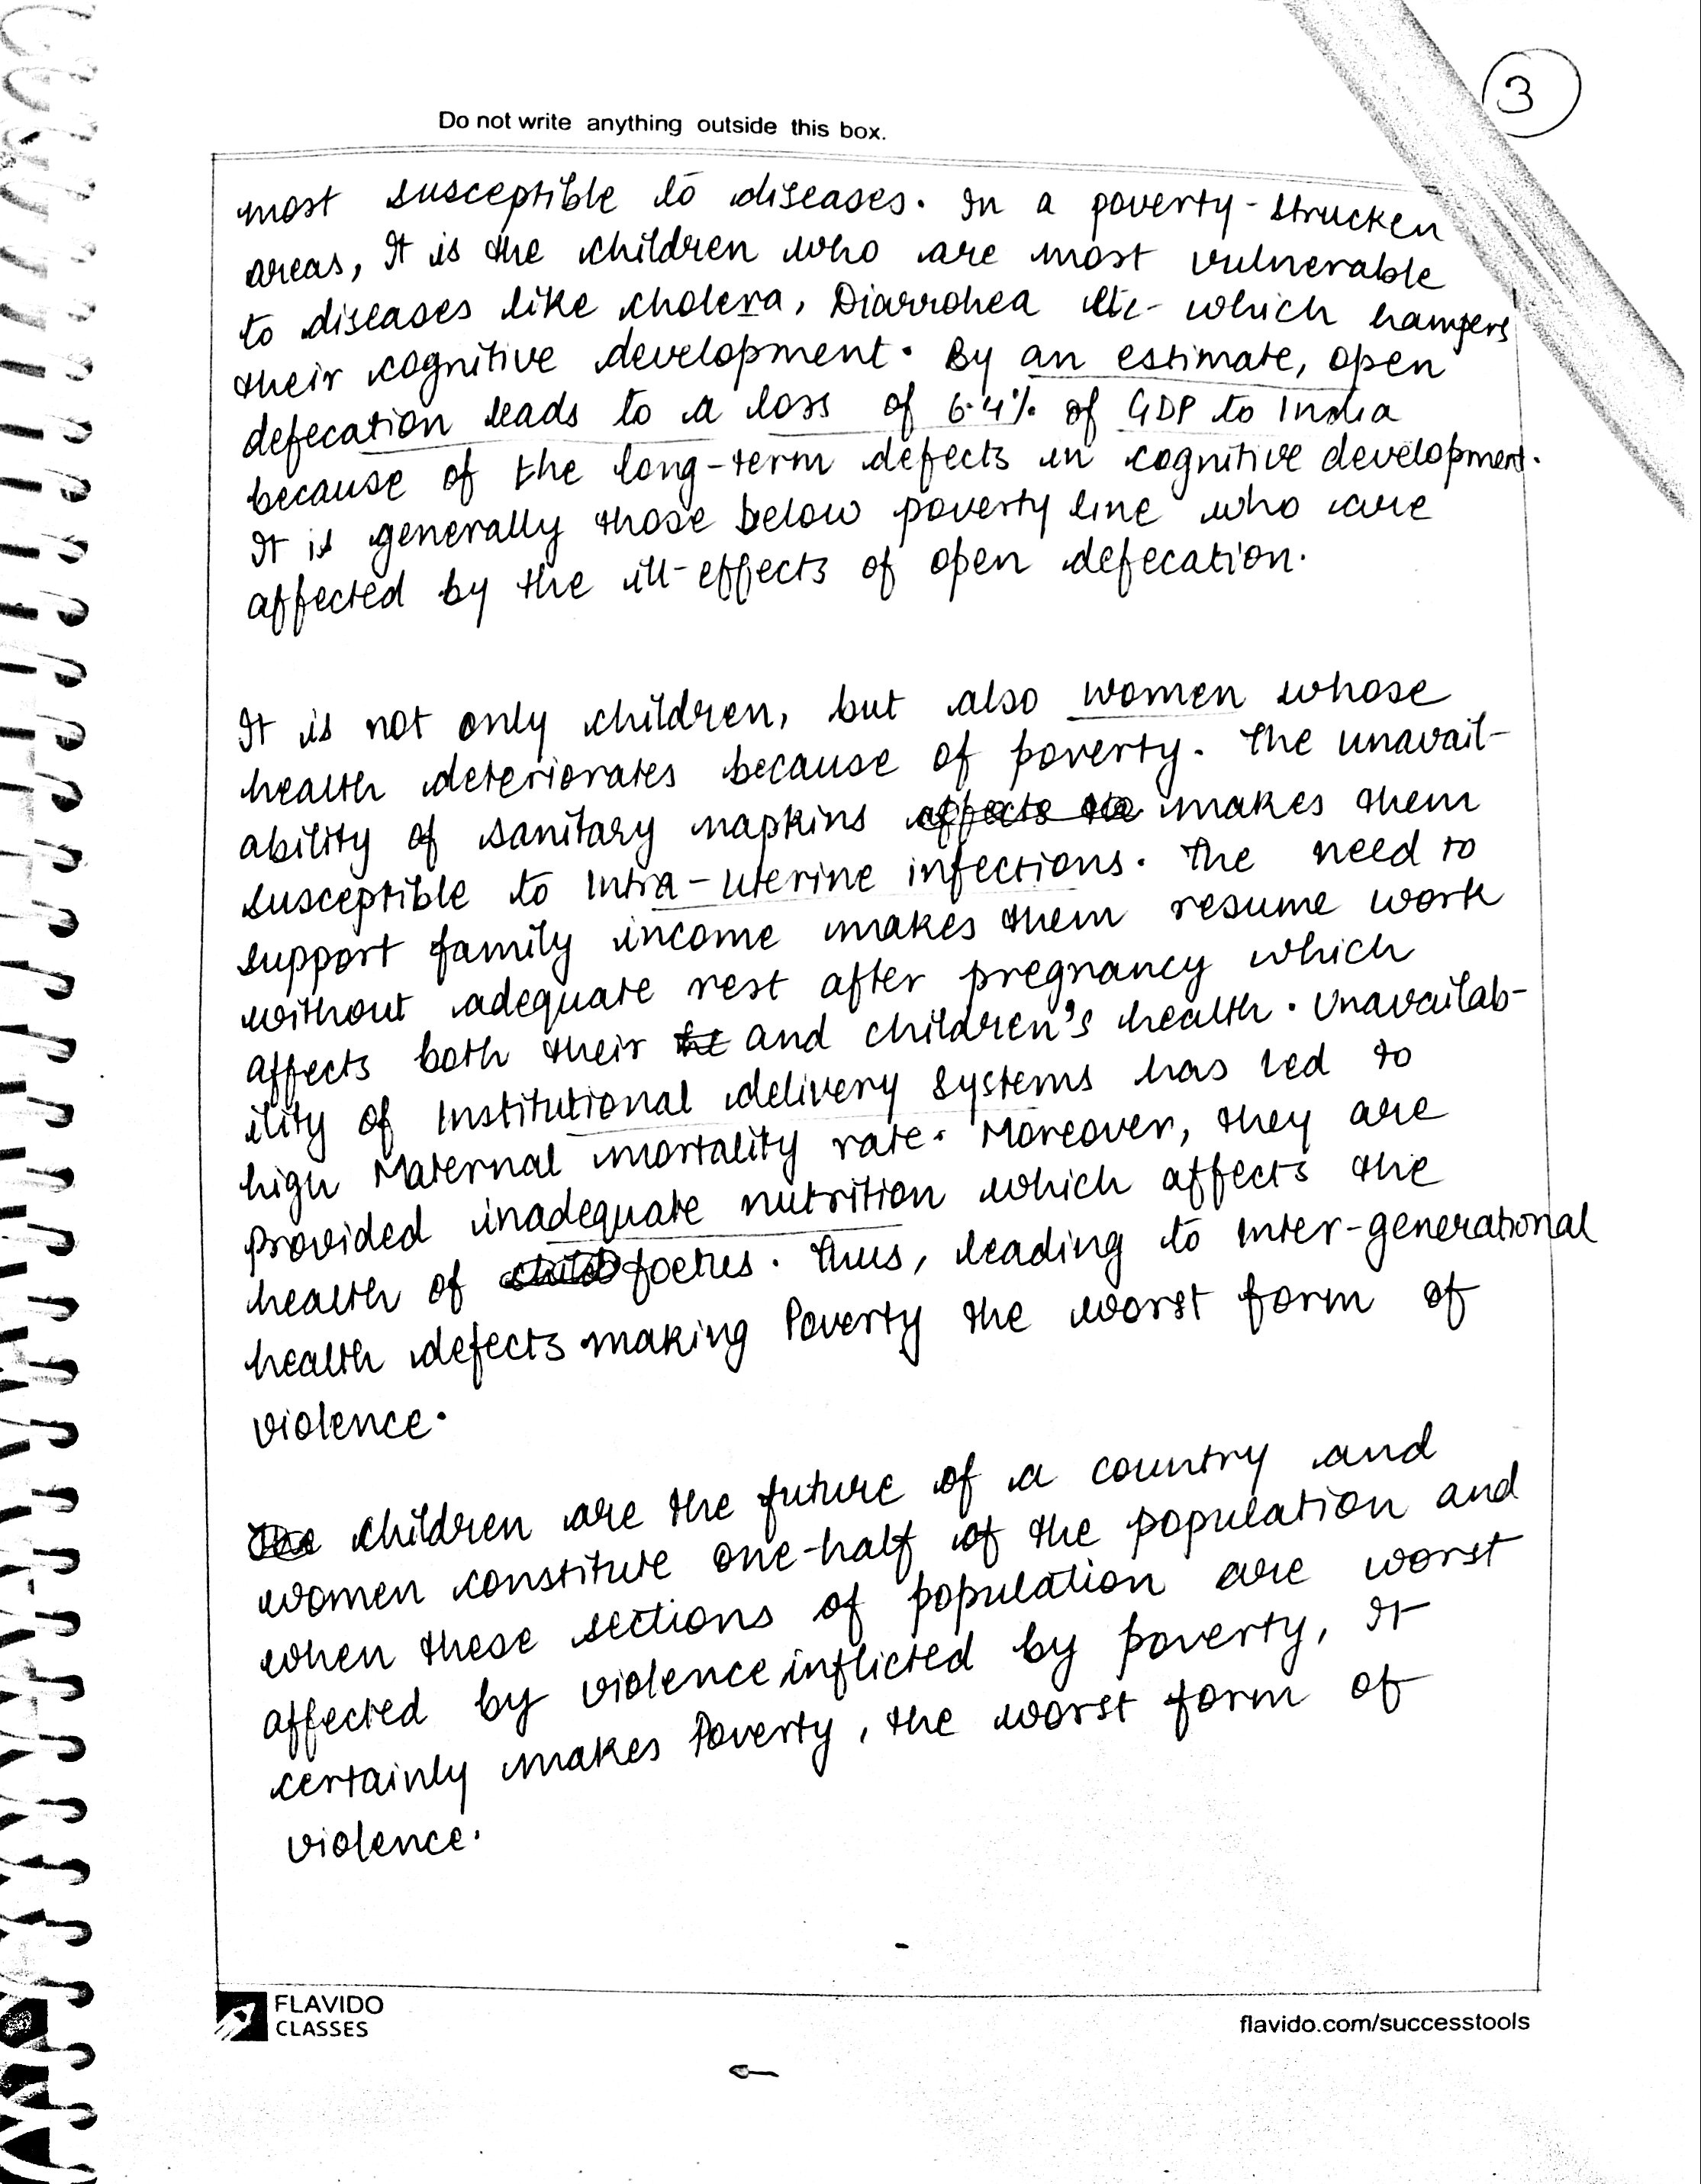 3
Do not write anything outside this box.
most susceptible to diseases. In a poverty-strucken
areas, It is the children who are most vulnerable
to diseases like cholera, Diarrohea etc- which hampers
their cognitive development. By an estimate, open
defecation leads to a loss of 6.4% of GDP to India
because of the long-term defects in cognitive development.
It is generally those below poverty line who are
affected by the ill-effects of open defecation.
It is not only children, but also women whose
health deteriorates because of poverty. The unavail-
ability of sanitary napkins affects the makes them
susceptible to Intra-uterine infections. The need to
support family income makes them resume work
without adequate rest after pregnancy which
affects both their he and children's health. Unavailab-
ility of Institutional delivery systems has led to
high Maternal mortality rate. Moreover, they are
provided inadequate nutrition which affects the
health of child foetus. Thus, leading to Inter-generational
health defects making Poverty the worst form of
violence.
The children are the future of a country and
women constitute one-half of the population and
when these sections of population are worst
affected by violence inflicted by poverty, It
certainly makes Poverty, the worst form of
violence.
FLAVIDO
CLASSES
flavido.com/successtools